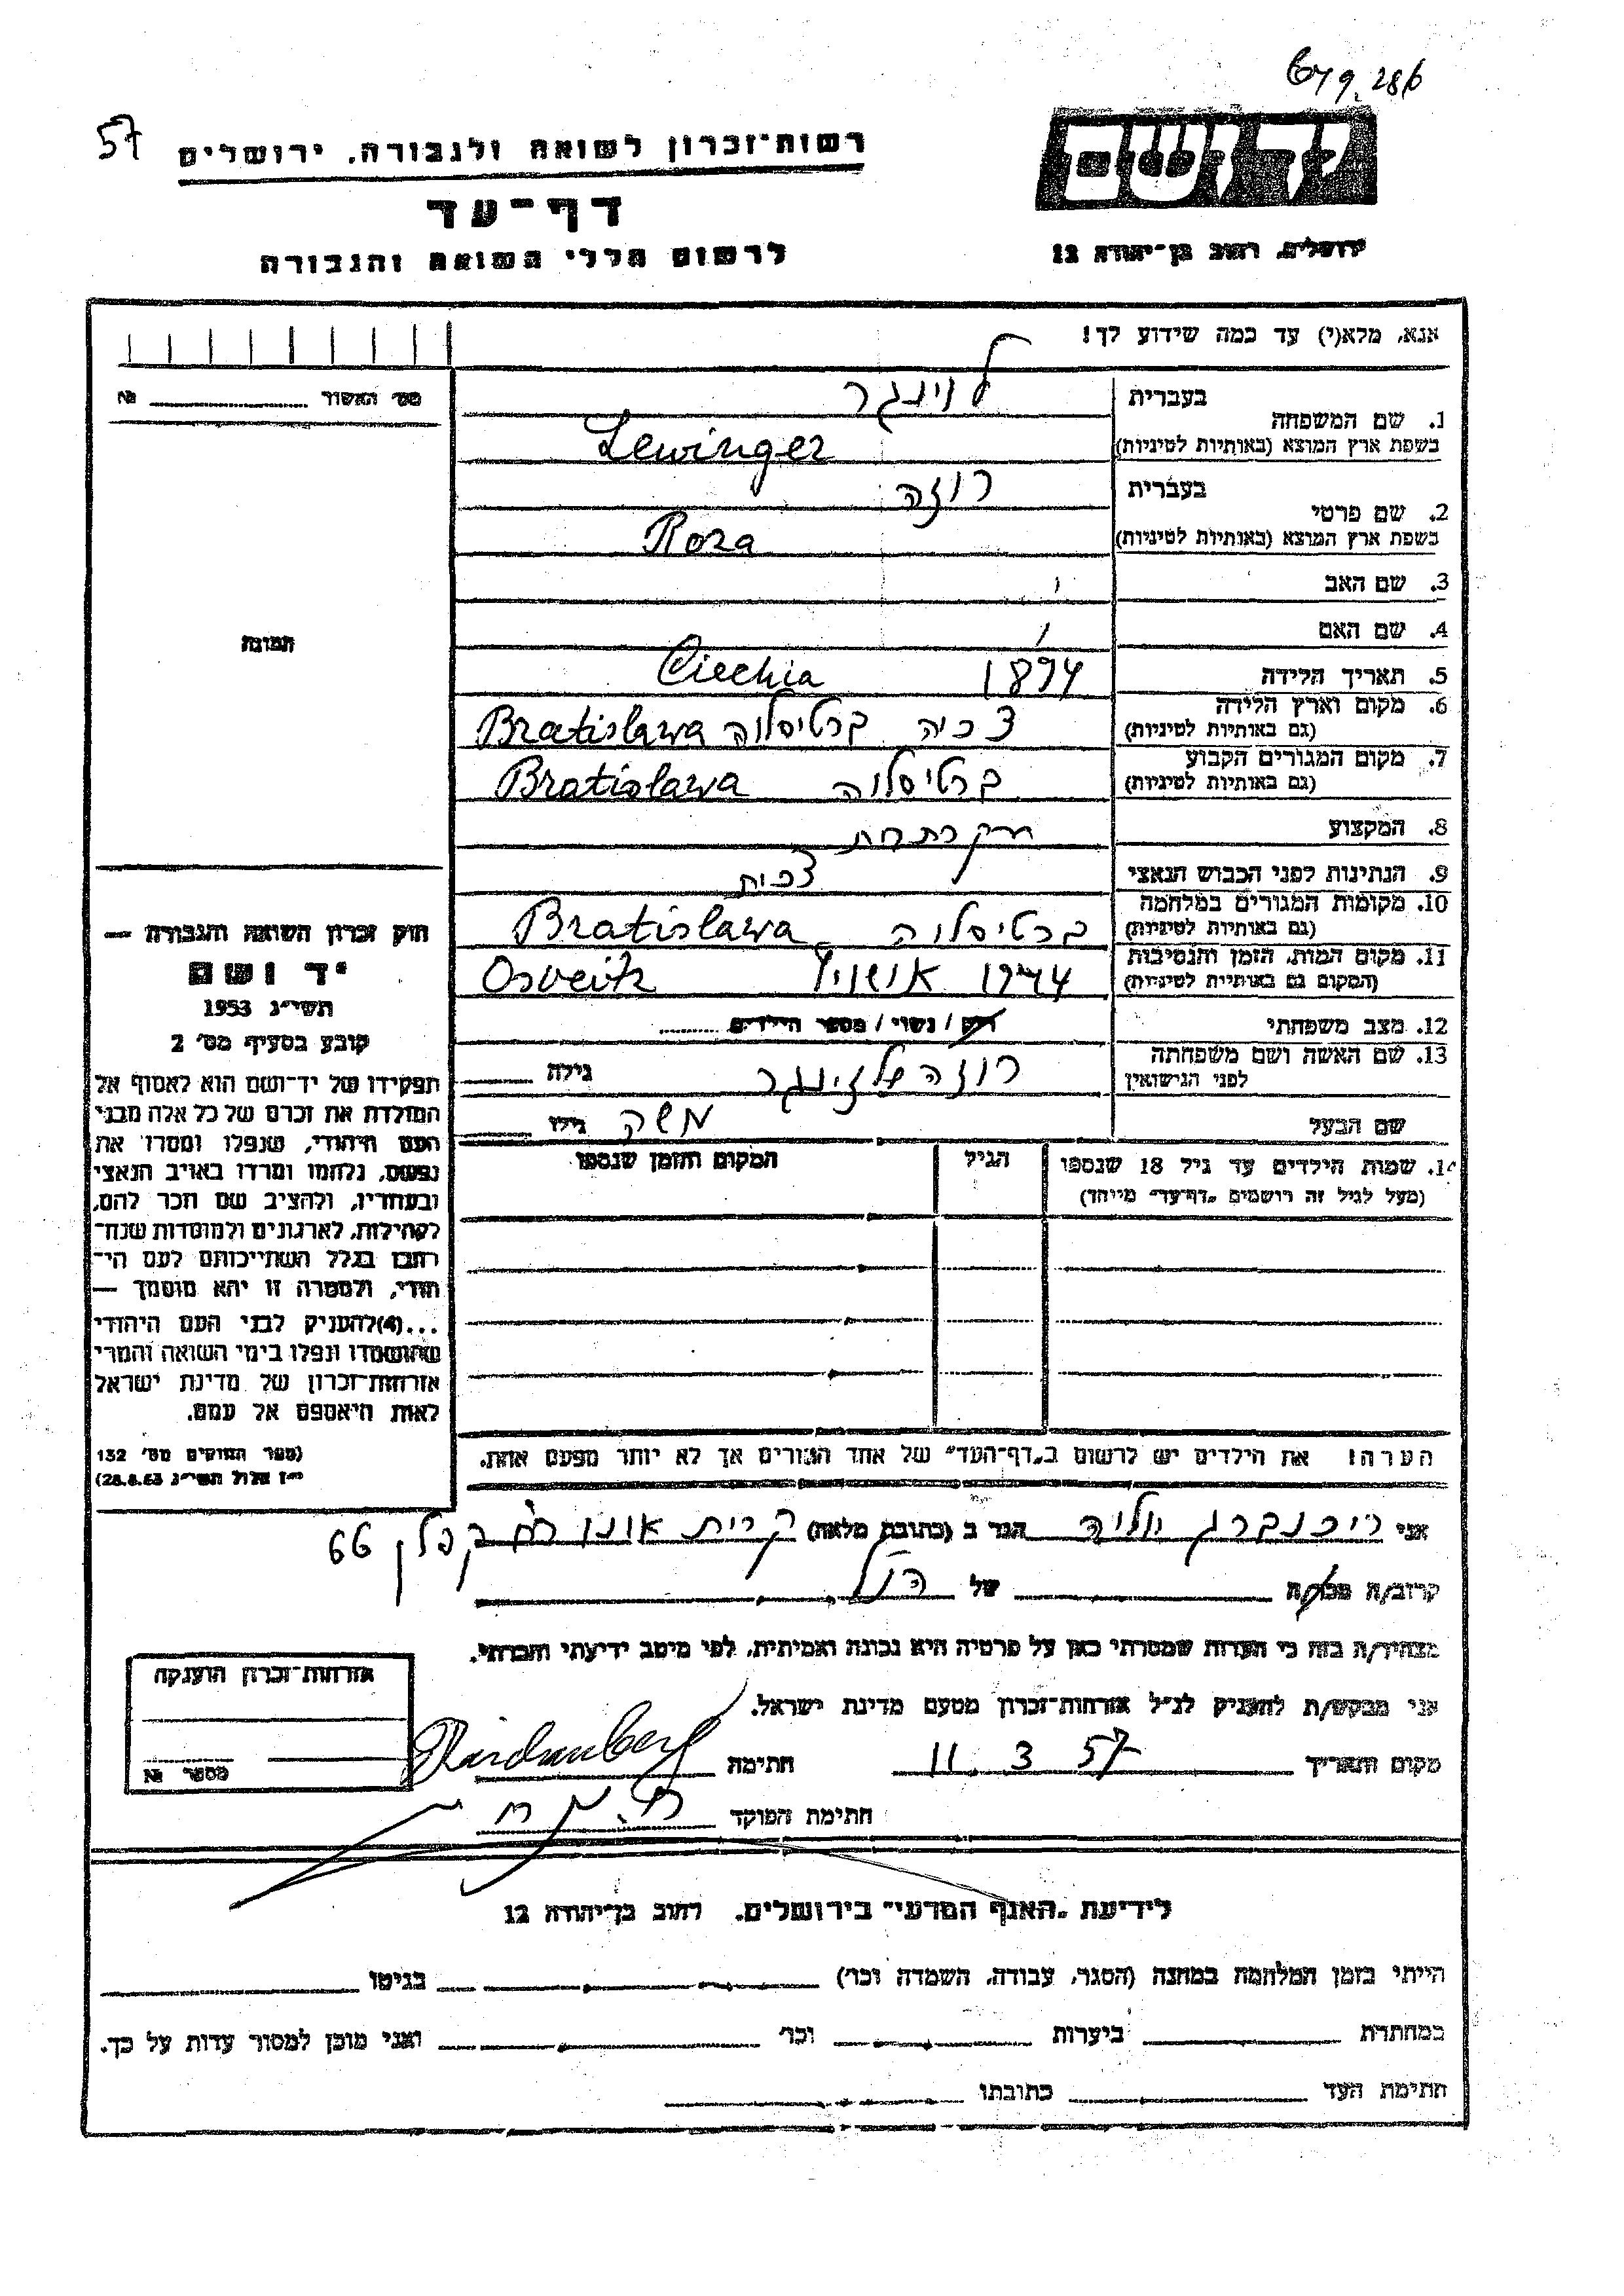 57
רשות־זכרון לשואה ולגבורה, ירושלים
דף־עד
לרשום חללי השואה והגבורה
יד ושם
ירושלים, רחוב בן־יהודה 12
אנא, מלא(י) עד כמה שידוע לך!
מס' האשור № 
1. שם המשפחה
בעברית לוינגר
בשפת ארץ המוצא (באותיות לטיניות) Lewinger
2. שם פרטי
בעברית רוזה
בשפת ארץ המוצא (באותיות לטיניות) Roza
3. שם האב
4. שם האם
5. תאריך הלידה 1894 Ciechia
6. מקום וארץ הלידה
(גם באותיות לטיניות) צכיה ברטיסלוה Bratislawa
7. מקום המגורים הקבוע
(גם באותיות לטיניות) ברטיסלוה Bratislawa
8. המקצוע
9. הנתינות לפני הכבוש הנאצי צכית
10. מקומות המגורים במלחמה
(גם באותיות לטיניות) ברטיסלוה Bratislawa
11. מקום המות, הזמן והנסיבות
(המקום גם באותיות לטיניות) 1944 אושויץ Osveitz
12. מצב משפחתי רווק / נשוי / מספר הילדים
13. שם האשה ושם משפחתה
לפני הנישואין רוזה גילה
שם הבעל משה גילו
14. שמות הילדים עד גיל 18 שנספו הגיל המקום והזמן שנספו
(מעל לגיל זה רושמים "דף־עד" מיוחד)
הערה! את הילדים יש לרשום ב"דף־העד" של אחד ההורים אך לא יותר מפעם אחת.
התמונה
חוק זכרון השואה והגבורה —
יד ושם
תשי"ג 1953
קובע בסעיף מס' 2
תפקידו של יד־ושם הוא לאסוף אל
המולדת את זכרם של כל אלה מבני
העם היהודי, שנפלו ומסרו את
נפשם, נלחמו ומרדו באויב הנאצי
ובעוזריו, ולהציב שם וזכר להם,
לקהילות, לארגונים ולמוסדות שנח־
רבו בגלל השתייכותם לעם הי־
הודי, ולמטרה זו יהא מוסמך —
...(4)להעניק לבני העם היהודי
שהושמדו ונפלו בימי השואה והמרי
אזרחות־זכרון של מדינת ישראל
לאות היאספם אל עמם.
(ספר החוקים מס' 132
י"ז אלול תשי"ג 28.8.53)
אני רייכנברג יוליה הגר ב (כתובת מלאה) קרית אונו רח' קפלן 66
קרוב/ה מכר/ה של הנ"ל
מצהיר/ה בזה כי העדות שמסרתי כאן על פרטיה היא נכונה ואמיתית, לפי מיטב ידיעתי והכרתי.
אני מבקש/ת להעניק לנ"ל אזרחות־זכרון מטעם מדינת ישראל.
מקום ותאריך 11. 3 57 חתימה
חתימת הפוקד
אזרחות־זכרון הוענקה
מספר №
לידיעת "האגף המדעי" בירושלים, רחוב בן־יהודה 12
הייתי בזמן המלחמה במחנה (הסגר, עבודה, השמדה וכו') בגיטו
במחתרת ביערות וכו' ואני מוכן למסור עדות על כך.
חתימת העד כתובתו